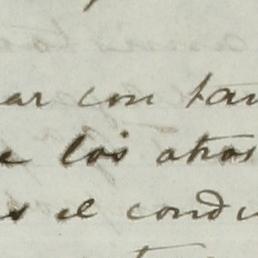 ar con tan
e los otros
s el condu